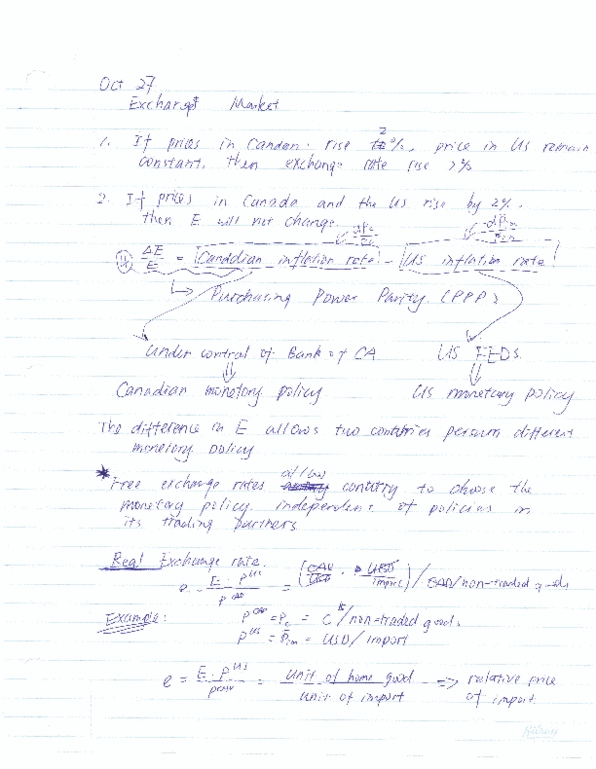 Oct 27
Exchangt Market
1. If prices in Canden. rise 2%, price in US remain
constant. then exchange rate rise 2%
2. If prices in Canada and the US rise by 2%.
then E will not change.
ΔE/E = Canadian inflation rate - US inflation rate
↳ Purchasing Power Parity (PPP)
under control of Bank of CA US FEDs.
Canadian monetary policy US monetary policy
The difference in E allows two countries different
monetary policy
* Free exchange rates allow country to choose the
monetary policy. independent of policies in
its trading partners
Real Exchange rate.
e = E · P^US / P^CAD = (CAD/USD · USD/import) / CAD/non-traded goods
Example: P^CAD = Pc = C$/non-traded goods
P^US = Pim = USD/import
e = E · P^US / P^CAD = unit of home good / unit of import => relative price
of import